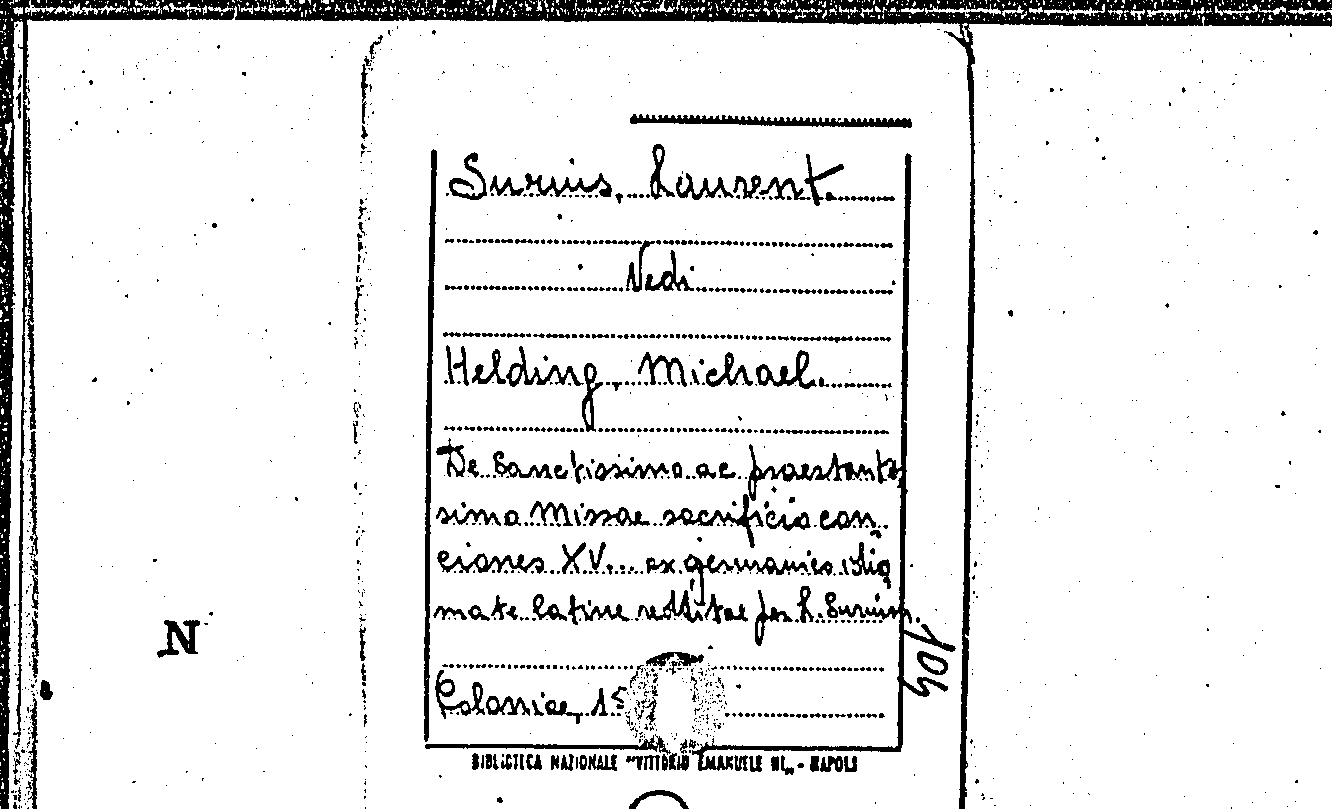 Surius, Laurent.
Vedi
Helding, Michael.
De Sanctissimo ac praestantis
simo Missae sacrificio con
ciones XV... ex germanico idio
mate latine redditae per L. Surium.
104
Coloniae, 15
N
BIBLIOTECA NAZIONALE "VITTORIO EMANUELE III„ - NAPOLI